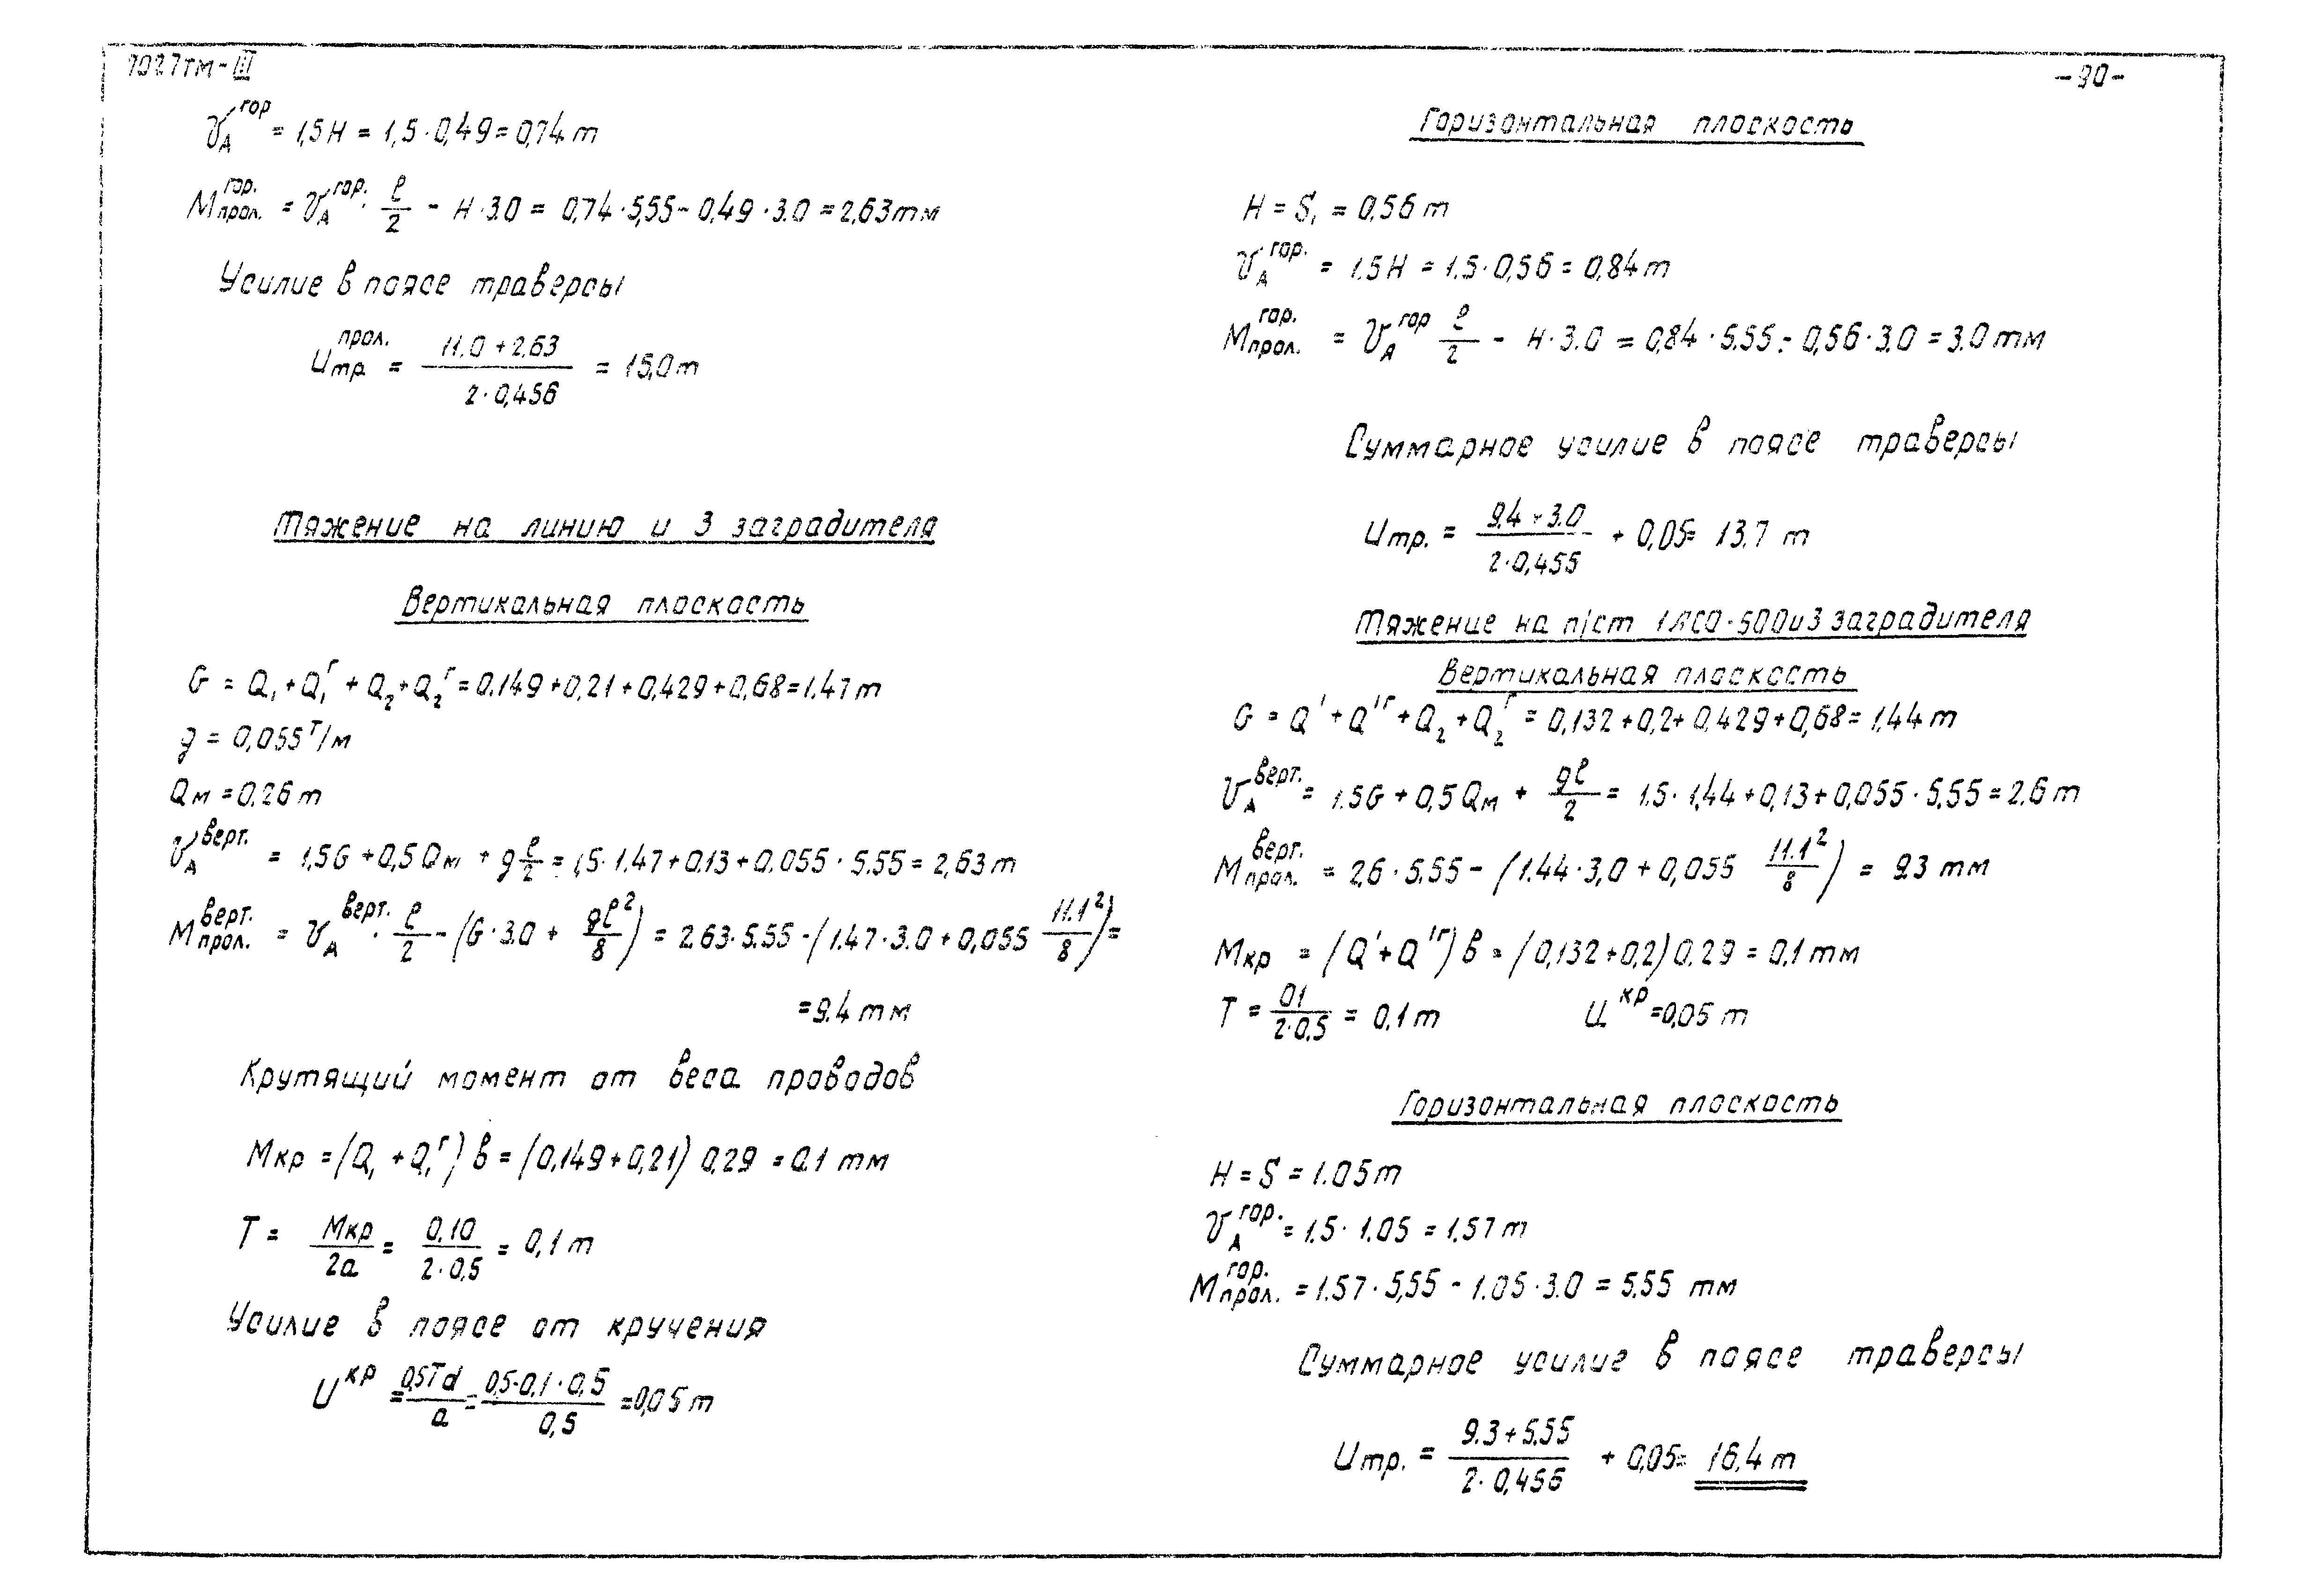 7027тм-III
-90-
V_A^гор = 1,5H = 1,5·0,49 = 0,74 т
M_прол.^гор. = V_A^гор. · ℓ/2 - H·3.0 = 0,74·5,55 - 0,49·3.0 = 2,63 тм
Усилие в поясе траверсы
U_тр^прол. = (11.0 + 2.63)/(2·0,456) = 15,0 т
Тяжение на линию и 3 заградителя
Вертикальная плоскость
G = Q₁ + Q₁^г + Q₂ + Q₂^г = 0.149 + 0,21 + 0,429 + 0,68 = 1.47 т
g = 0,055 т/м
Qм = 0,26 т
V_A^верт. = 1,5G + 0,5Qм + g ℓ/2 = 1,5·1.47 + 0.13 + 0.055·5.55 = 2,63 т
M_прол.^верт. = V_A^верт. · ℓ/2 - (G·3.0 + gℓ²/8) = 2.63·5.55 - (1.47·3.0 + 0,055 11.1²/8) =
= 9.4 тм
Крутящий момент от веса проводов
Mкр = (Q₁ + Q₁^г) в = (0,149 + 0,21) 0,29 = 0.1 тм
T = Mкр/2a = 0,10/(2·0,5) = 0,1 т
Усилие в поясе от кручения
U^кр = 0,5Td/a = (0,5·0,1·0,5)/0,5 = 0,05 т
Горизонтальная плоскость
H = S₁ = 0,56 т
V_A^гор. = 1.5H = 1.5·0,56 = 0,84 т
M_прол.^гор. = V_A^гор ℓ/2 - H·3.0 = 0,84·5.55 - 0,56·3.0 = 3.0 тм
Суммарное усилие в поясе траверсы
U_тр. = (9.4 + 3.0)/(2·0,455) + 0,05 = 13.7 т
Тяжение на п/ст 1АСО-500 и 3 заградителя
Вертикальная плоскость
G = Q' + Q'^г + Q₂ + Q₂^г = 0,132 + 0,2 + 0,429 + 0,68 = 1,44 т
V_A^верт. = 1.5G + 0,5Qм + gℓ/2 = 1.5·1,44 + 0,13 + 0,055·5,55 = 2.6 т
M_прол.^верт. = 2,6·5.55 - (1.44·3,0 + 0,055 11.1²/8) = 9.3 тм
Mкр = (Q' + Q'^г) в = (0,132 + 0,2) 0.29 = 0,1 тм
T = 01/(2·0,5) = 0,1 т U^кр = 0,05 т
Горизонтальная плоскость
H = S = 1.05 т
V_A^гор. = 1.5·1.05 = 1.57 т
M_прол.^гор. = 1.57·5,55 - 1.05·3.0 = 5.55 тм
Суммарное усилие в поясе траверсы
U_тр. = (9.3 + 5.55)/(2·0,456) + 0,05 = 16,4 т